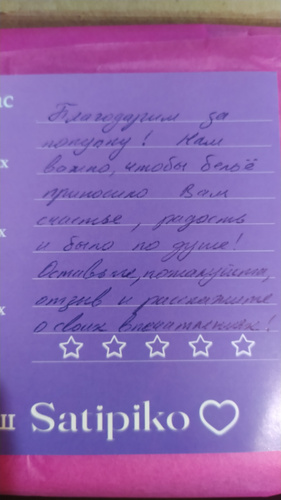 ас
Благодарим за
покупку! Нам
х
важно, чтобы бельё
приносило Вам
счастье, радость
х
и было по душе!
Оставьте, пожалуйста,
отзыв и расскажите
х
о своих впечатлениях!
ш Satipiko